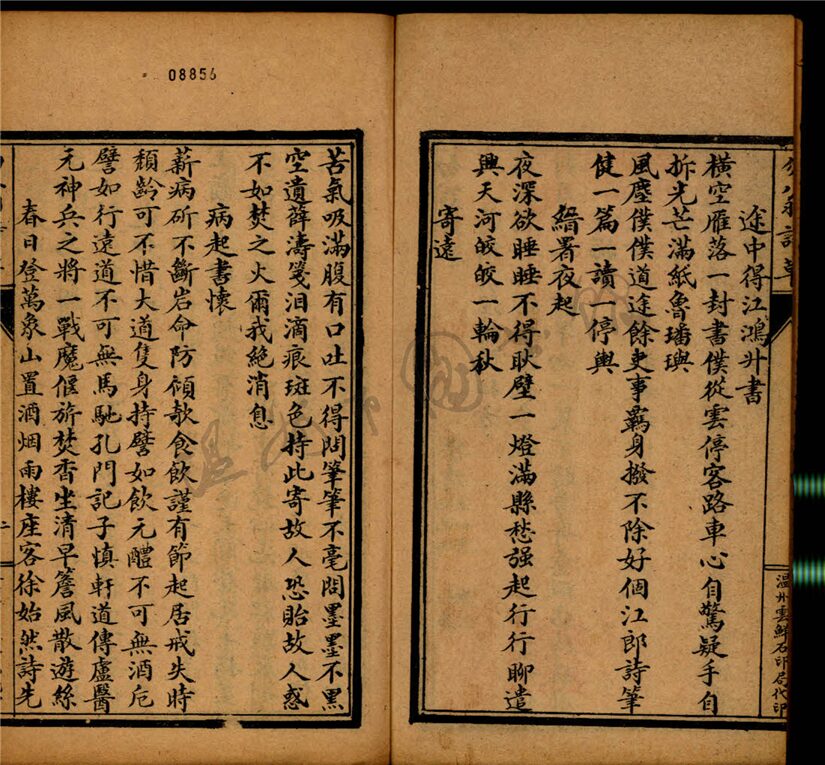 途中得江鴻升書
橫空雁落一封書僕從雲停客路車心自驚疑手自
拆光芒滿紙魯璠璵
風塵僕僕道途餘吏事羈身撥不除好個江郎詩筆
健一篇一讀一停輿
縉署夜起
夜深欲睡睡不得耿壁一燈滿縣愁强起行行聊遣
興天河皎皎一輪秋
寄遠
溫州雲鮮石印局代印
08856
苦氣吸滿腹有口吐不得問筆筆不毫問墨墨不黑
空遺薛濤箋泪滴痕斑色持此寄故人恐貽故人惑
不如焚之火爾我絶消息
病起書懷
薪病斫不斷岩命防傾欹食飲謹有節起居戒失時
頹齡可不惜大道隻身持譬如飲元醴不可無酒卮
譬如行遠道不可無馬馳孔門記子慎軒道傳盧醫
元神兵之將一戰魔偃旂焚香坐清早簷風散遊絲
春日登萬象山置酒烟雨樓座客徐始然詩先
二